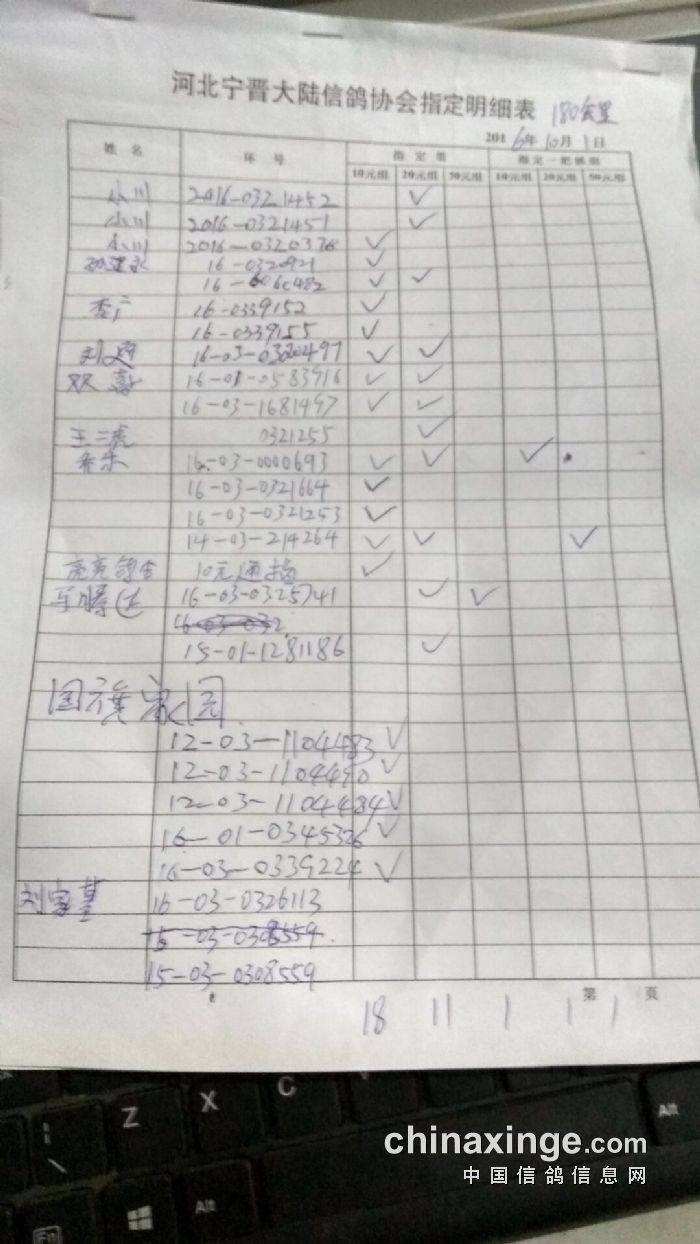 河北宁晋大陆信鸽协会指定明细表 180公里
2016年10月1日
姓 名 环 号 指 定 组 指 定 一 把 抓 组
10元组 20元组 50元组 10元组 20元组 50元组
小川 2016-0321452 ✓
小川 2016-0321451 ✓
小川 2016-0320338 ✓
16-0320921 ✓
16- ✓ ✓
16-0339152 ✓
16-0339155 ✓
刘 16-03-0320497 ✓ ✓
双喜 16-01-0583916 ✓ ✓
16-03-1681497 ✓ ✓
王二虎 0321255 ✓
16-03-0000693 ✓ ✓ ✓
16-03-0321664 ✓
16-03-0321253 ✓
14-03-214264 ✓ ✓ ✓
亮亮鸽舍 10元通指 ✓
16-03-0325741 ✓ ✓
16-03-032
15-01-1281186 ✓
国旗家园
12-03-1104483 ✓
12-03-1104490 ✓
12-03-1104484 ✓
16-01-0345326 ✓
16-03-0339224 ✓
刘 16-03-0326113
15-03-0308559
15-03-0308559
第 页
18 11 1 1 1
Z X C V Alt
Fn Alt
chinaxinge.com
中国信鸽信息网